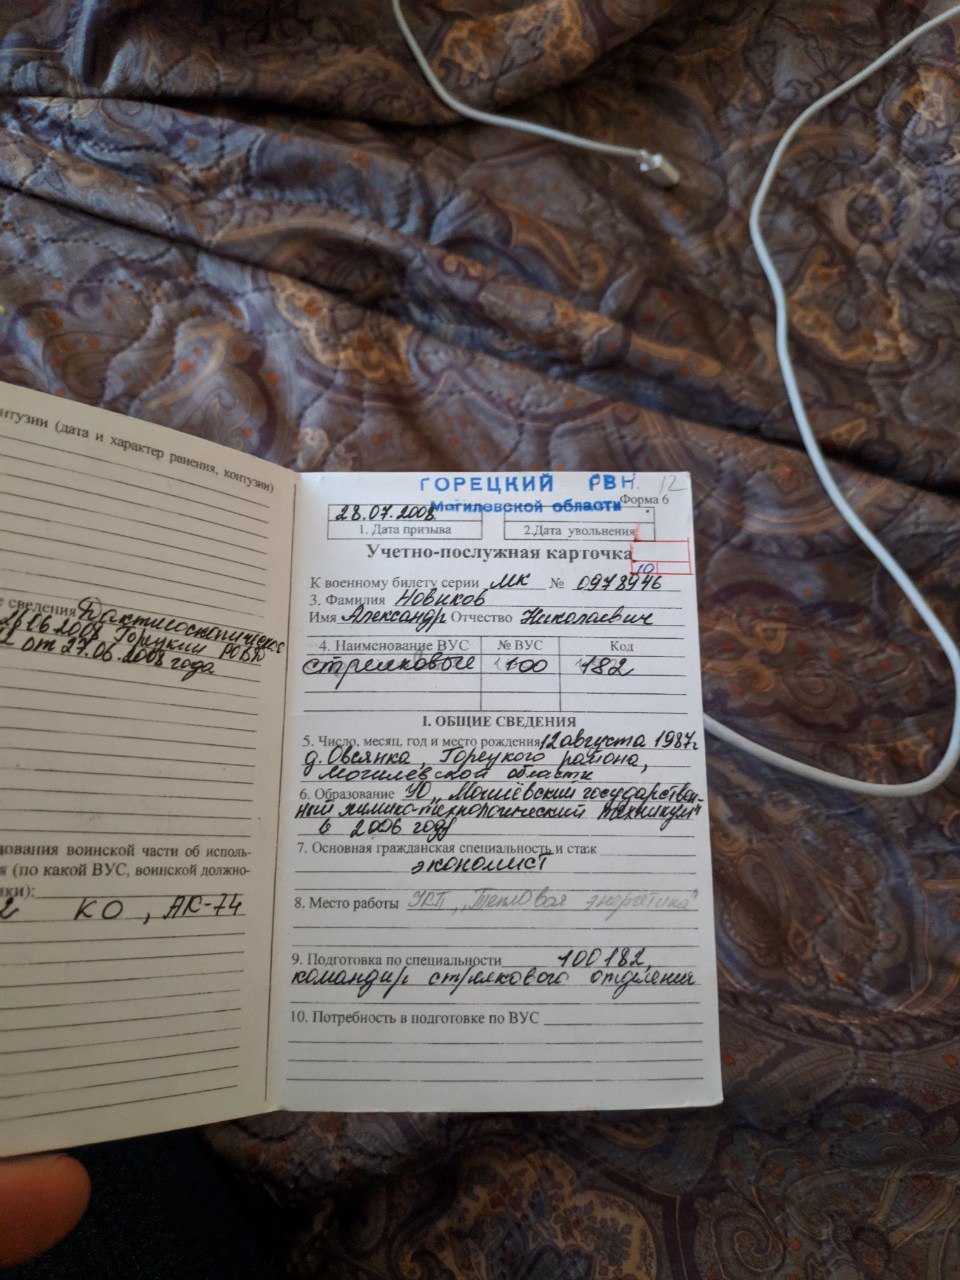 (дата и характер ранения, контузии)
сведения Дактилоскопическое
Горецкий РОВД
от 27.06.2008 года
воинской части об исполь-
(по какой ВУС, воинской должно-
КО, АК-74
ГОРЕЦКИЙ РВК
Могилевской области
12
Форма 6
28.07.2008
1. Дата призыва
2.Дата увольнения
Учетно-послужная карточка
10
К военному билету серии МК № 0978946
3. Фамилия Новиков
Имя Александр Отчество Николаевич
4. Наименование ВУС № ВУС Код
стрелковые 100 182
I. ОБЩИЕ СВЕДЕНИЯ
5. Число, месяц, год и место рождения 12 августа 1987г
д. Овсянка, Горецкого района,
Могилевской области
6. Образование УО "Могилёвский государствен-
ный химико-технологический техникум"
в 2006 году
7. Основная гражданская специальность и стаж
экономист
8. Место работы УКП "Тепловая энергетика"
9. Подготовка по специальности 100182,
командир стрелкового отделения
10. Потребность в подготовке по ВУС